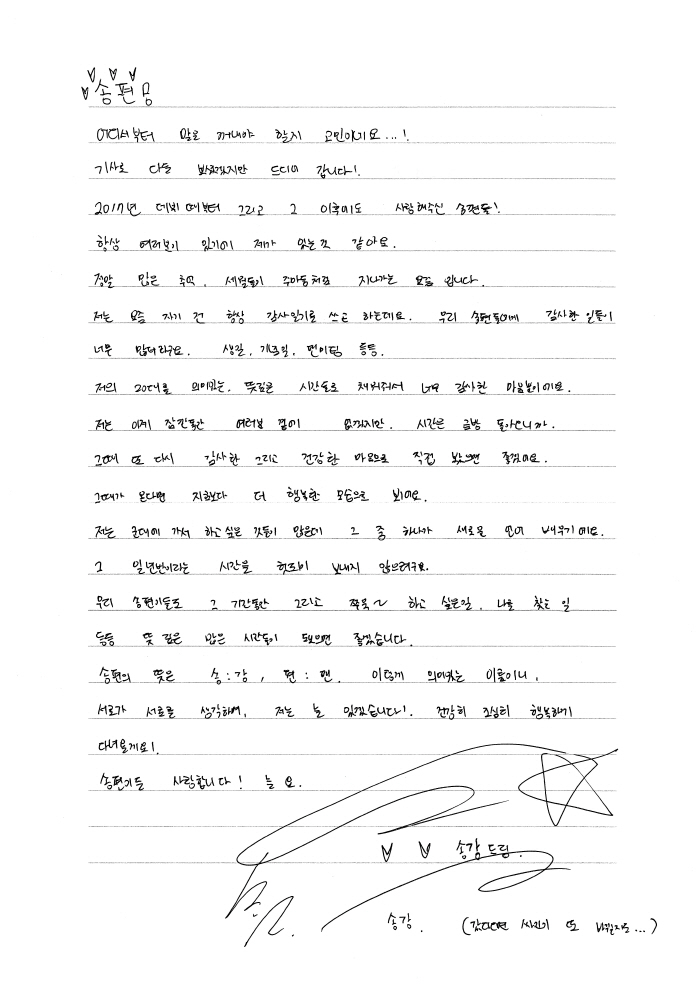 송편 몽
어디서부터 말을 꺼내야 할지 고민이기요...!
기사로 다들 보셨겠지만 드디어 갑니다!
2017년 데뷔 때부터 그리고 그 이후에도 사랑해주신 송편들!
항상 여러분이 있기에 제가 있는것 같아요.
정말 많은 추억, 세월들이 주마등처럼 지나가는 요즘 입니다.
저는 요즘 자기 전 항상 감사일기를 쓰고 하는데요. 우리 송편들에게 감사한 일들이
너무 많더라구요. 생일, 기념일, 팬미팅 등등.
저의 20대를 의미있는, 뜻깊은 시간들로 채워줘서 너무 감사한 마음뿐이에요.
저는 이제 잠깐동안 여러분 곁에 없겠지만, 시간은 금방 돌아오니까.
그때 또 다시 감사한 그리고 건강한 마음으로 직접 봤으면 좋겠어요.
그때가 온다면 지금보다 더 행복한 모습으로 봐요.
저는 군대에 가서 하고싶은 것들이 많은데 그 중 하나가 새로운 언어 배우기에요.
그 일년반이라는 시간을 헛되이 보내지 않으려구요.
우리 송편이들도 그 기간동안 그리고 쭈욱~ 하고 싶은일, 나를 찾는 일
등등 뜻 깊은 많은 시간들이 됐으면 좋겠습니다.
송편의 뜻은 송:강, 편:팬. 이렇게 의미있는 이름이니,
서로가 서로를 생각하며, 저는 늘 있겠습니다! 건강히 조심히 행복하게
다녀올게요!
송편이들 사랑합니다! 늘 요.
송강드림.
송강. (갔다오면 싸인이 또 바뀔지도...)